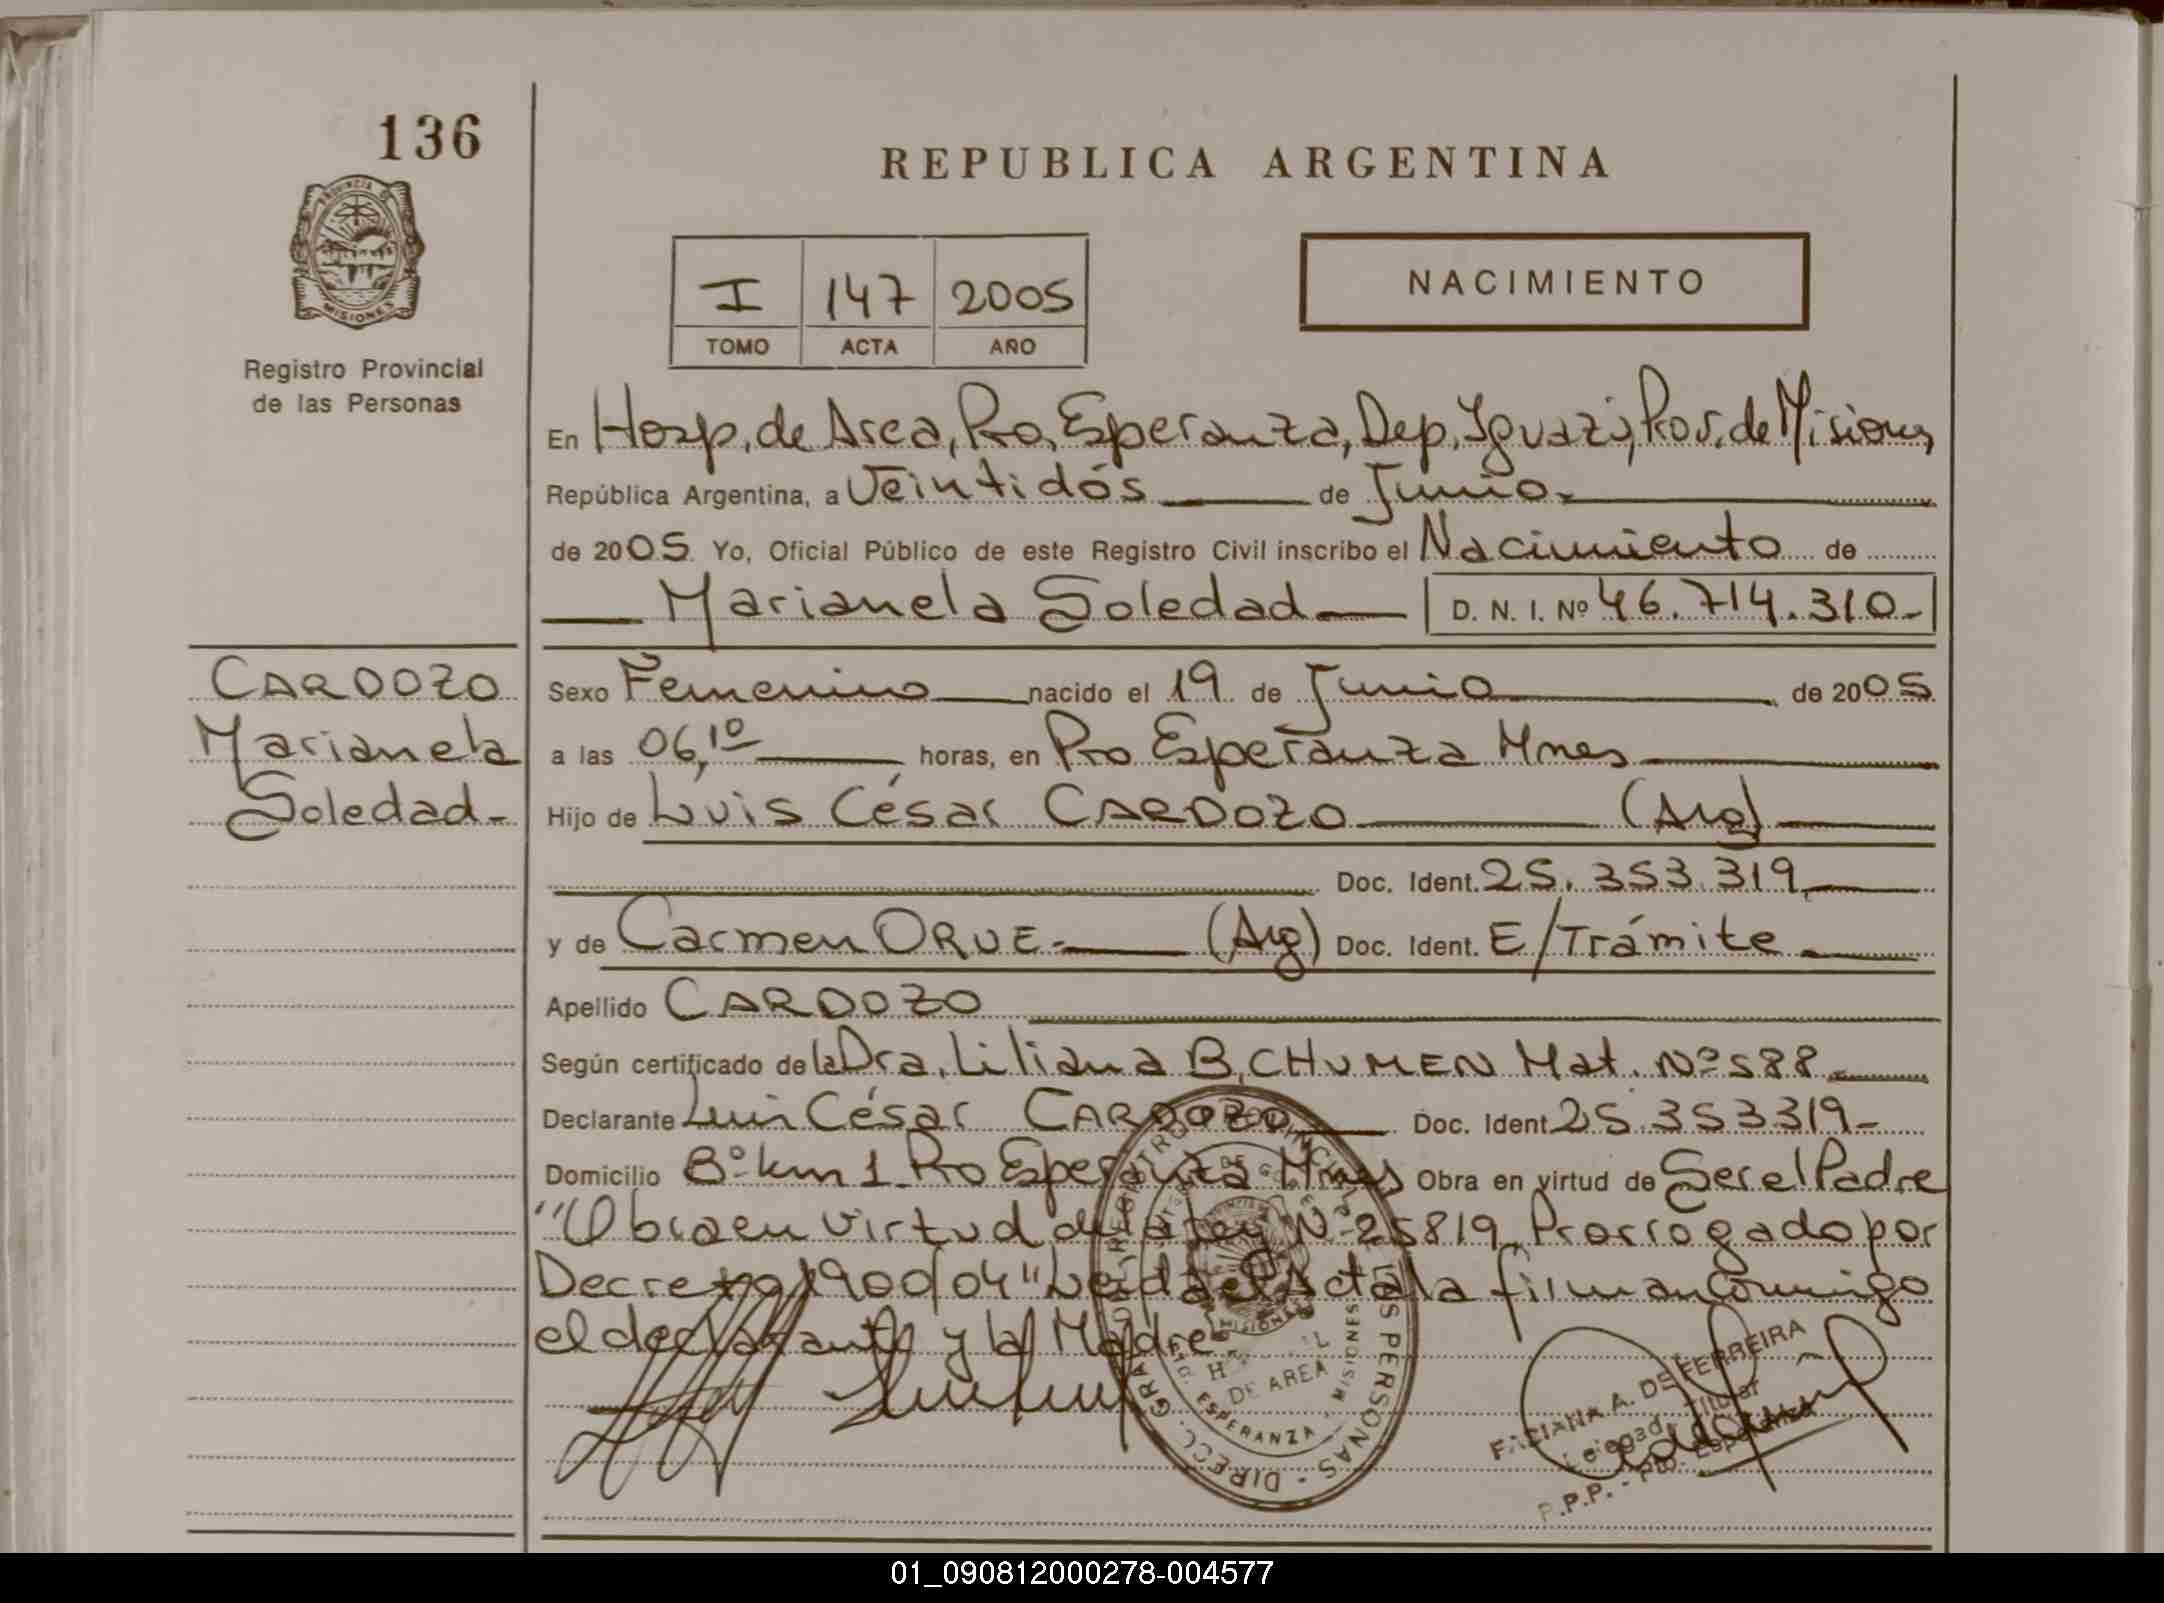 136
REPUBLICA ARGENTINA
PROVINCIA D
MISIONES
Registro Provincial
de las Personas
I 147 2005
TOMO ACTA AÑO
NACIMIENTO
En Hosp. de Area, Pto. Esperanza, Dep. Iguazú, Prov. de Misiones
República Argentina, a Veintidós de Junio.
de 2005 Yo, Oficial Público de este Registro Civil inscribo el Nacimiento de
Marianela Soledad D. N. I. Nº 46.714.310-
CARDOZO
Marianela
Soledad-
Sexo Femenino nacido el 19 de Junio de 2005
a las 06,10 horas, en Pto Esperanza Mnes
Hijo de Luis César CARDOZO (Arg)
Doc. Ident. 25.353.319
y de Carmen ORUE- (Arg) Doc. Ident. E/Trámite
Apellido CARDOZO
Según certificado de la Dra. Liliana B. CHUMEN Mat. Nº 588
Declarante Luis César CARDOZO Doc. Ident 25.353.319-
Domicilio Bº km 1 Pto Esperanza Mnes Obra en virtud de Ser el Padre
"Obra en virtud de la ley Nº 25819 Prorrogado por
Decreto 1900/04" Leída el Acta la firman Conmigo
el declarante y la Madre
DIRECC. GRAL REGISTRO PROVINCIAL DE LAS PERSONAS
MISIONES
DE AREA
ESPERANZA - MISIONES
A. DE FERREIRA
Titular
R.P.P. - Pto. Esperanza
01_090812000278-004577